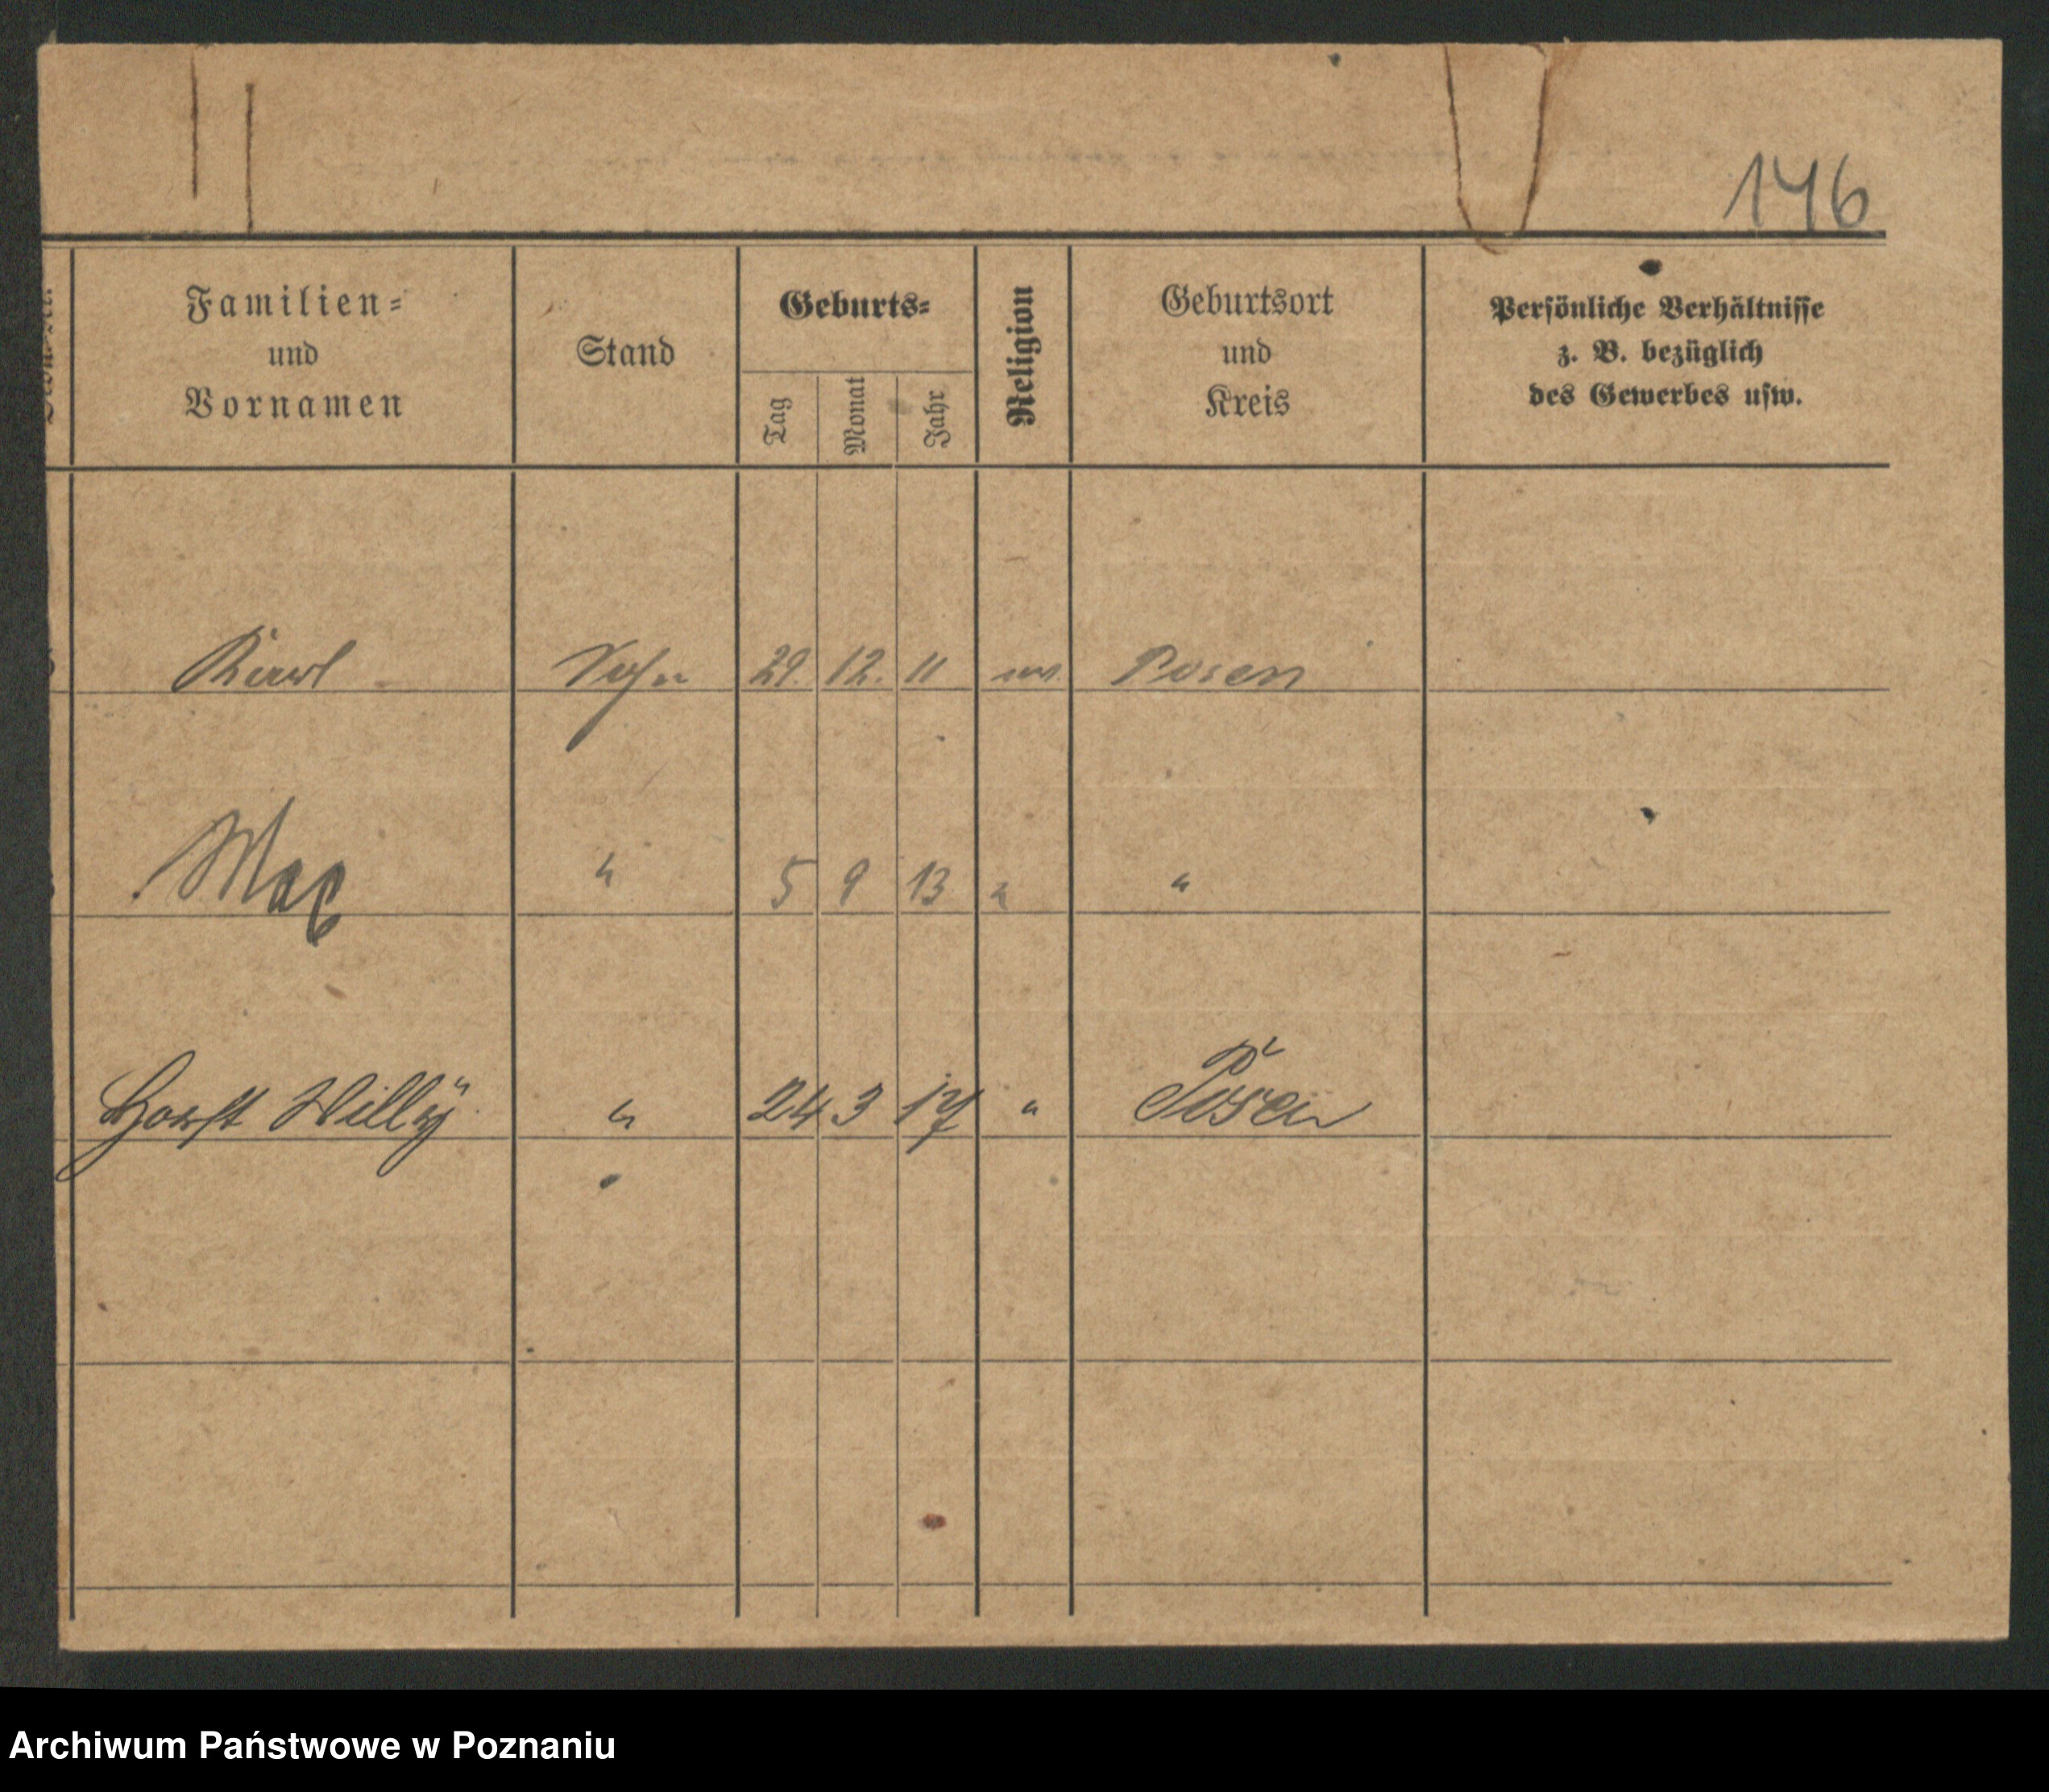 146
Familien=
und
Vornamen
Stand
Geburts=
Tag
Monat
Jahr
Religion
Geburtsort
und
Kreis
Persönliche Verhältnisse
z. B. bezüglich
des Gewerbes usw.
Karl Sohn 29. 12. 11 Posen
Max " 5 9 13 " "
Horst Willy " 24 3 17 " Posen
Archiwum Państwowe w Poznaniu